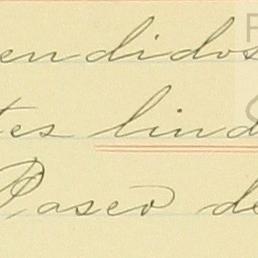 endidos
tes lind
Paseo de